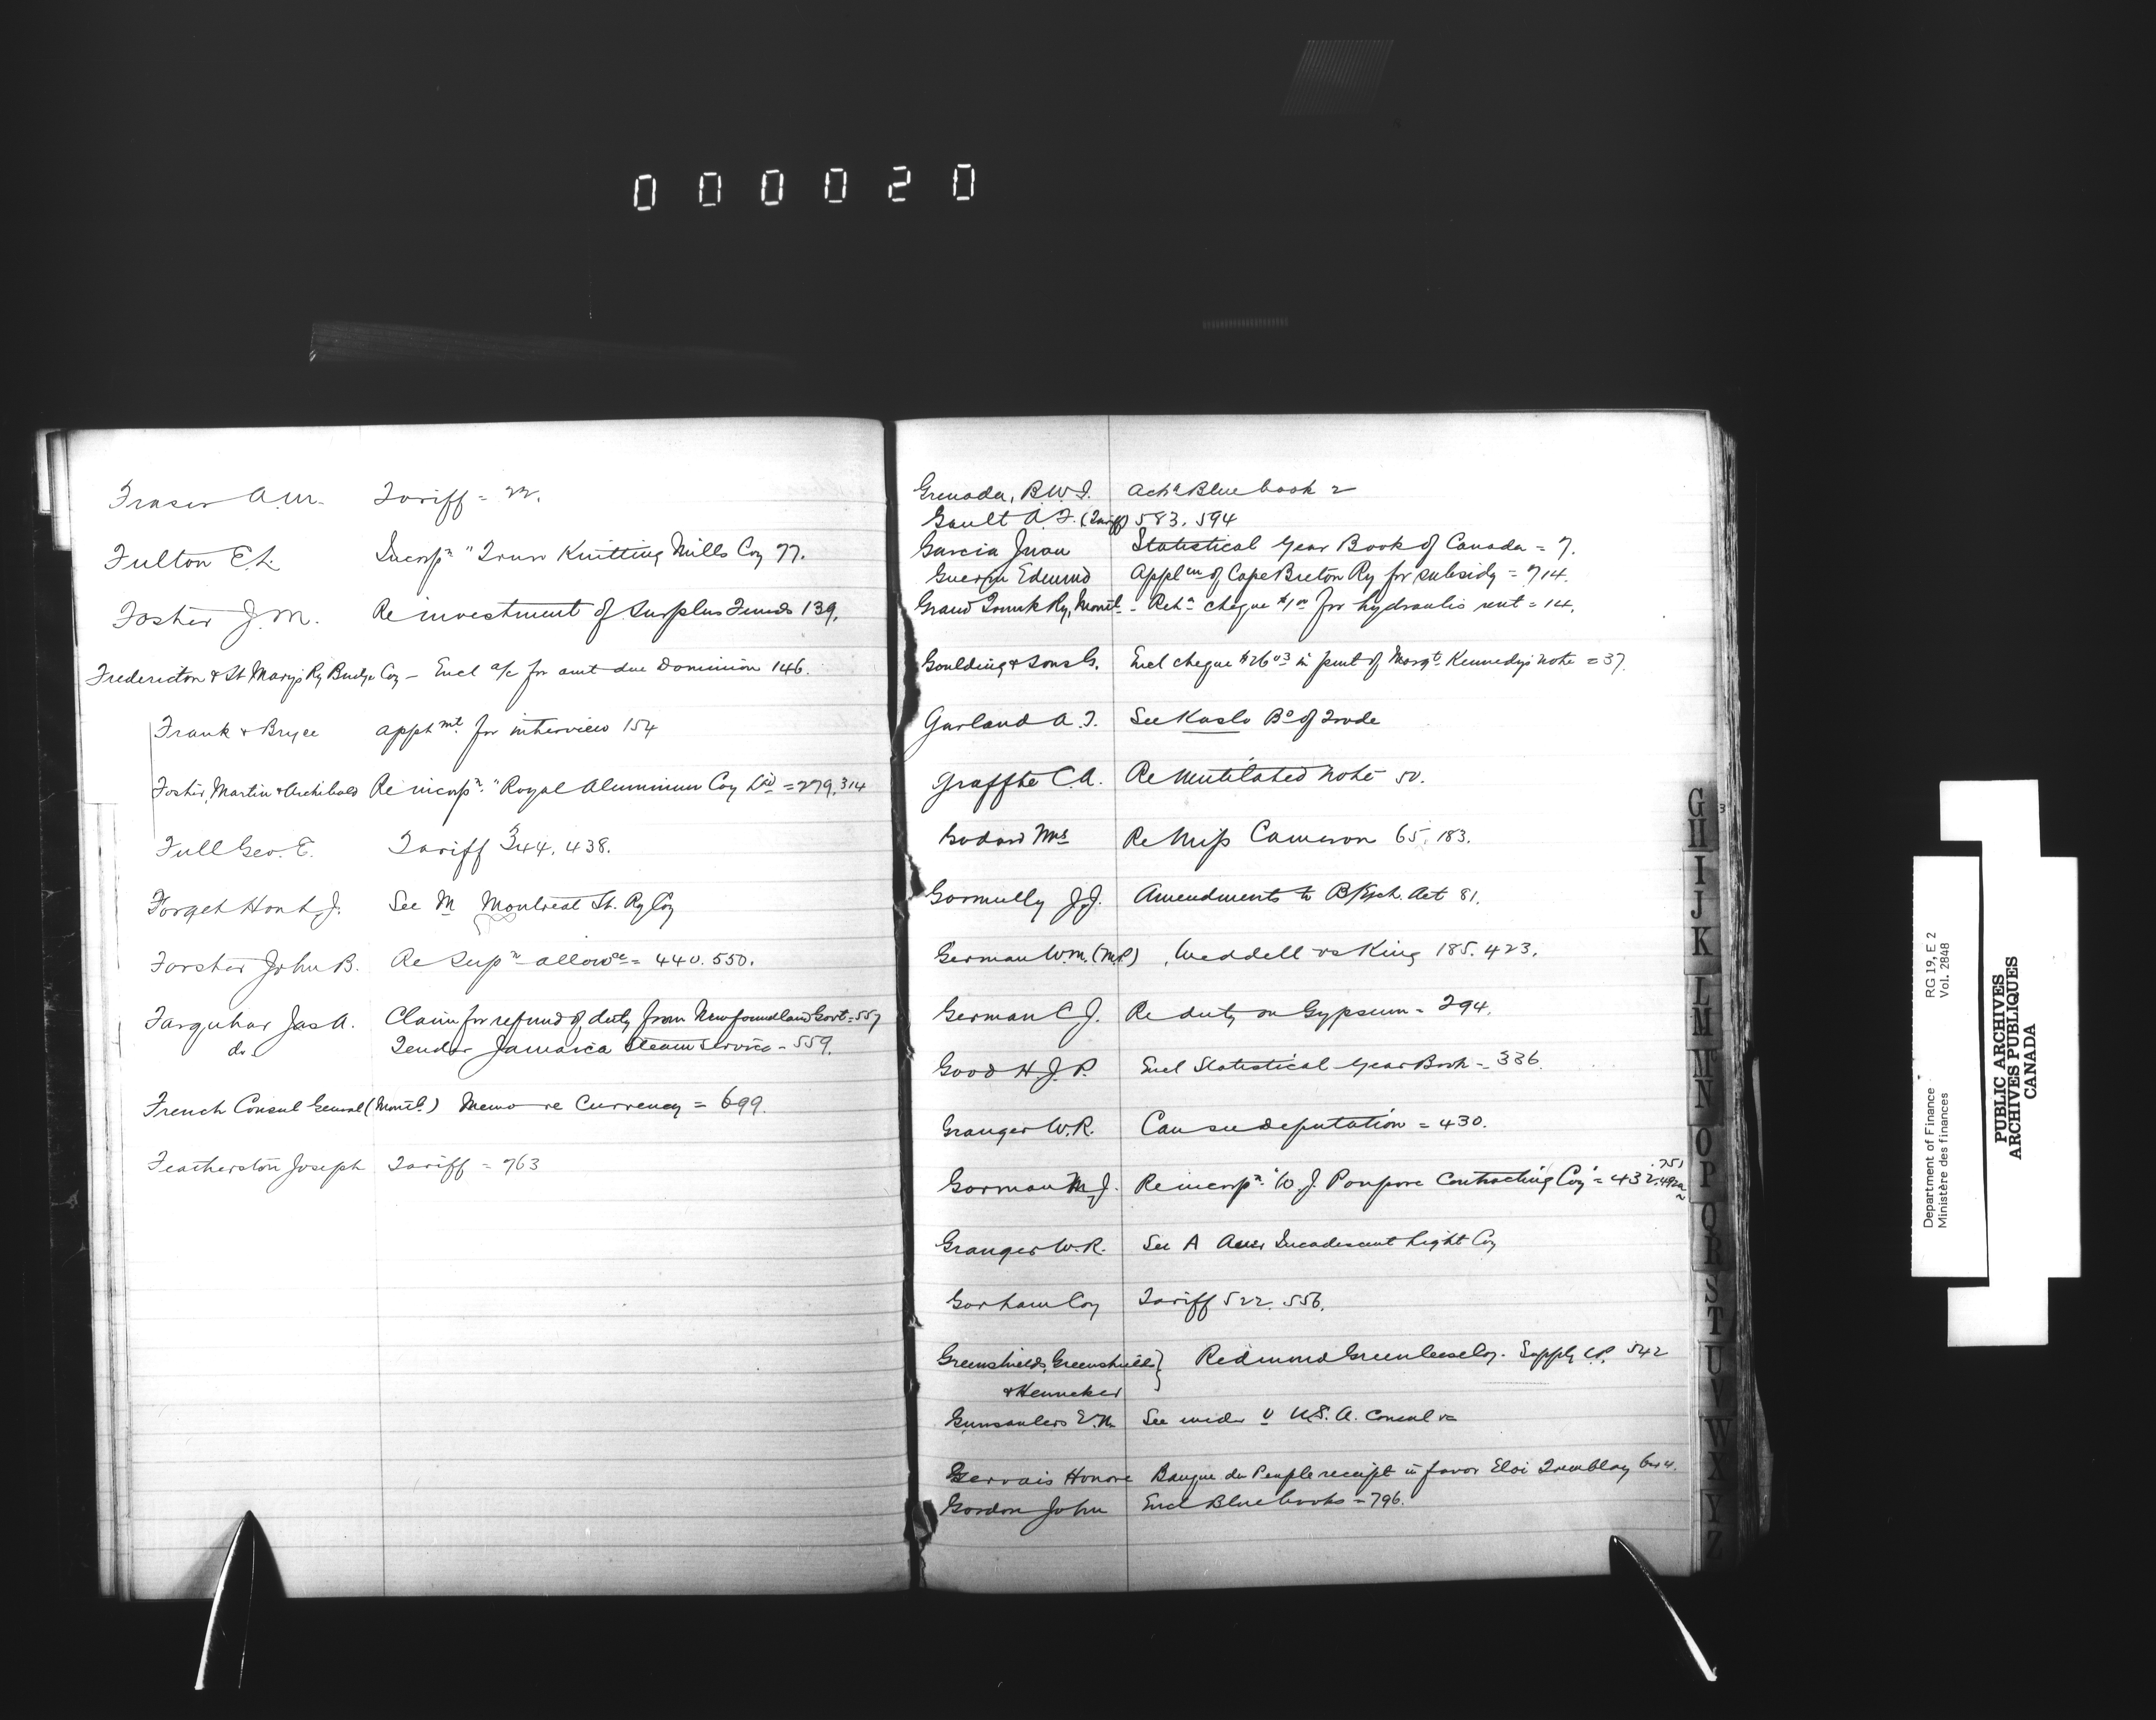 000020
Fraser A.W. Tariff = 22.
Fulton E.L. Incorpn "Truro Knitting Mills Coy 77.
Foster J.M. Re investment of Surplus Funds 139.
Fredericton & St Marys Ry Bridge Coy - Encl a/c for amt due Dominion 146.
Frank & Bryce apptmt for interview 154
Foster, Martin & Archibald Re incorpn "Royal Aluminium Coy Ltd = 279, 314
Full Geo. E. Tariff 344. 438.
Forget Hon L.J. See M Montreal St. Ry Coy
Forster John B. Re Supn allowce = 440. 550.
Farquhar Jas A. Claim for refund of duty from Newfoundland Govt = 557
do. Tender Jamaica Steam Service - 559.
French Consul General (Montl.) Memo re Currency = 699.
Featherston Joseph Tariff = 763
Grenada, B.W.I. Ackg Blue book 2
Gault A.F. (Tariff) 583. 594
Garcia Juan Statistical Year Book of Canada = 7.
Guerin Edmund Applcn of Cape Breton Ry for subsidy = 714.
Grand Trunk Ry, Montl - Retn cheque $1.00 for hydraulic rent = 14.
Goulding & Sons G. Encl cheque $26.03 in pmt of Margt. Kennedy's note = 37.
Garland A.T. See Kaslo Bd of Trade
Graffte C.A. Re Mutilated Note 50.
Godard Mrs Re Miss Cameron 65. 183.
Gormully J.J. Amendments to Bksch. Act 81.
German W.M. (M.P.) Weddell vs King 185. 423.
German C.J. Re duty on Gypsum - 294.
Good H.J.P. Encl Statistical Year Book - 336.
Granger W.R. Can see deputation = 430.
Gorman M.J. Re incorpn "W. J. Poupore Contracting Coy" = 432. 492a .751
Granger W.R. See A Auer Incadescent Light Coy
Gorham Coy Tariff 522. 556.
Greenshields, Greenshields } Redmond Greenleese Coy. Supply C.P. 542
& Henneker
Gunsaulus E.N. See under U U.S.A. Consul
Gervais Honore Banque du Peuple receipt in favor Eloi Tremblay
Gordon John Encl Blue books = 796.
G
H
I
J
K
L
M
M
N
O
P
Q
R
S
T
U
V
W
X
Y
Z
3
Department of Finance RG 19, E 2
Ministère des finances Vol. 2848
PUBLIC ARCHIVES
ARCHIVES PUBLIQUES
CANADA